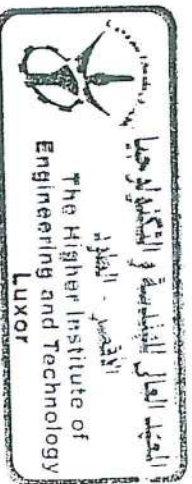 المعهد العالى للهندسة و التكنولوجيا
The Higher Institute of
Engineering and Technology
Luxor